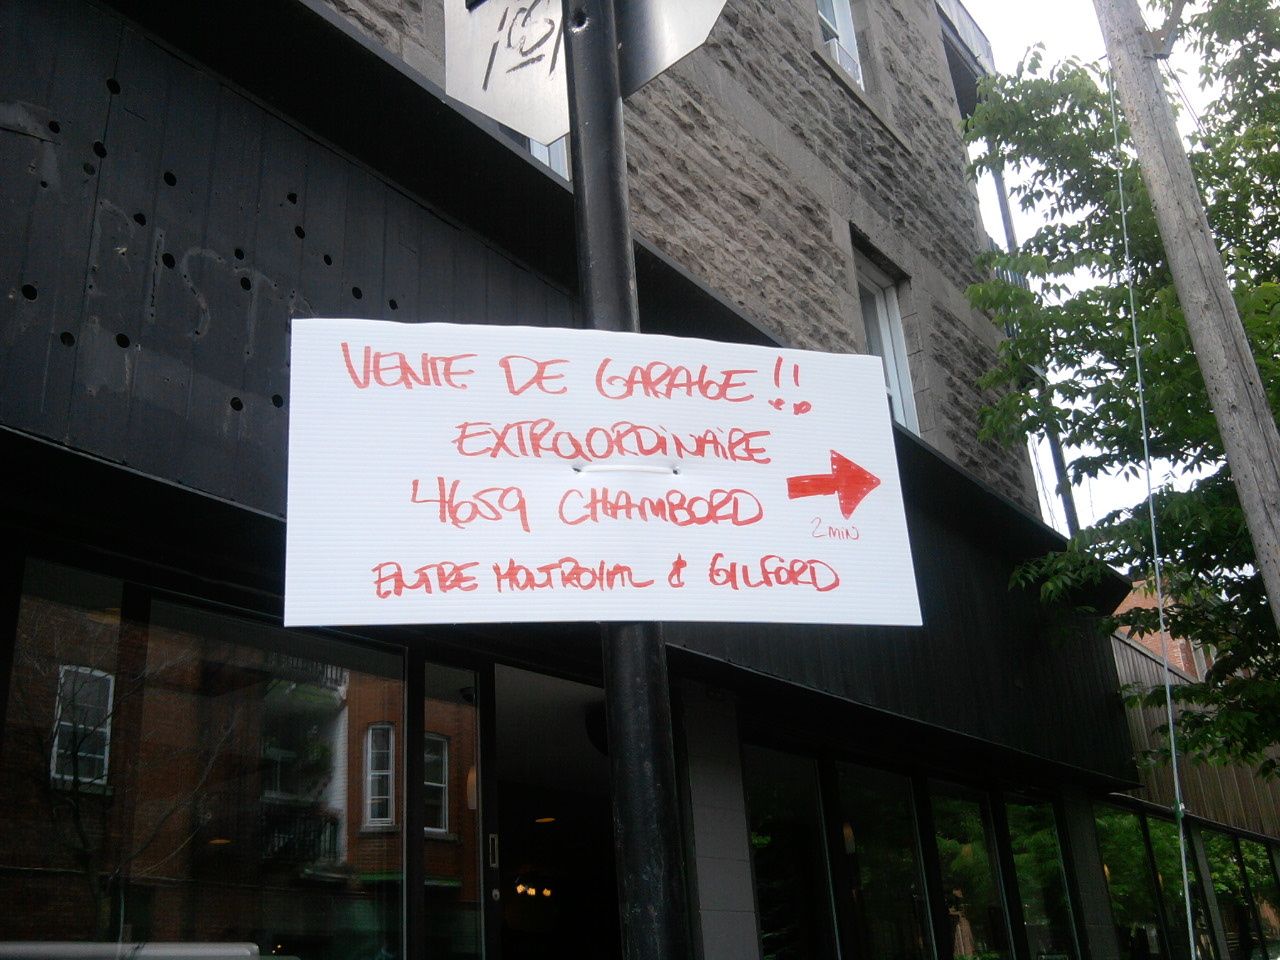 VENTE DE GARAGE !!
EXTRAORDINAIRE
4659 CHAMBORD
2 MIN
ENTRE MONTROYAL & GILFORD